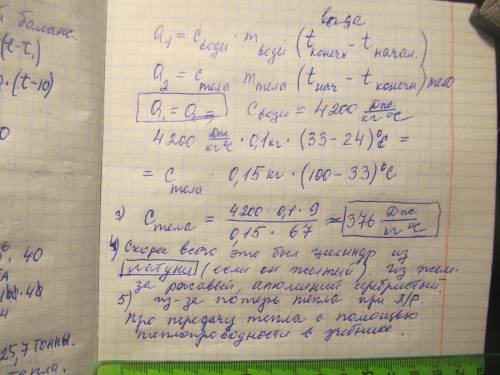 й баланс.
(t-t₁)
·(t-10)
40
48
25,7 тонны.
тепла.
вода
Q₁ = c воды · m воды (t конечн - t начал.)
Q₂ = c тела · m тела (t нач - t конечн) тело
Q₁ = Q₂ = c воды = 4200 Дж/кг °C
4200 Дж/кг °C · 0,1 кг · (33 - 24)°C =
= c тела · 0,15 кг · (100 - 33)°C
3) c тела = 4200 · 0,1 · 9 / 0,15 · 67 = 376 Дж/кг °C
4) Скорее всего это был цилиндр из
латуни (если он желтый). Из желе-
за ржавый, алюминий серебристый.
5) Из-за потерь тепла при Л/Р.
Про передачу тепла с помощью
теплопроводности в учебнике.